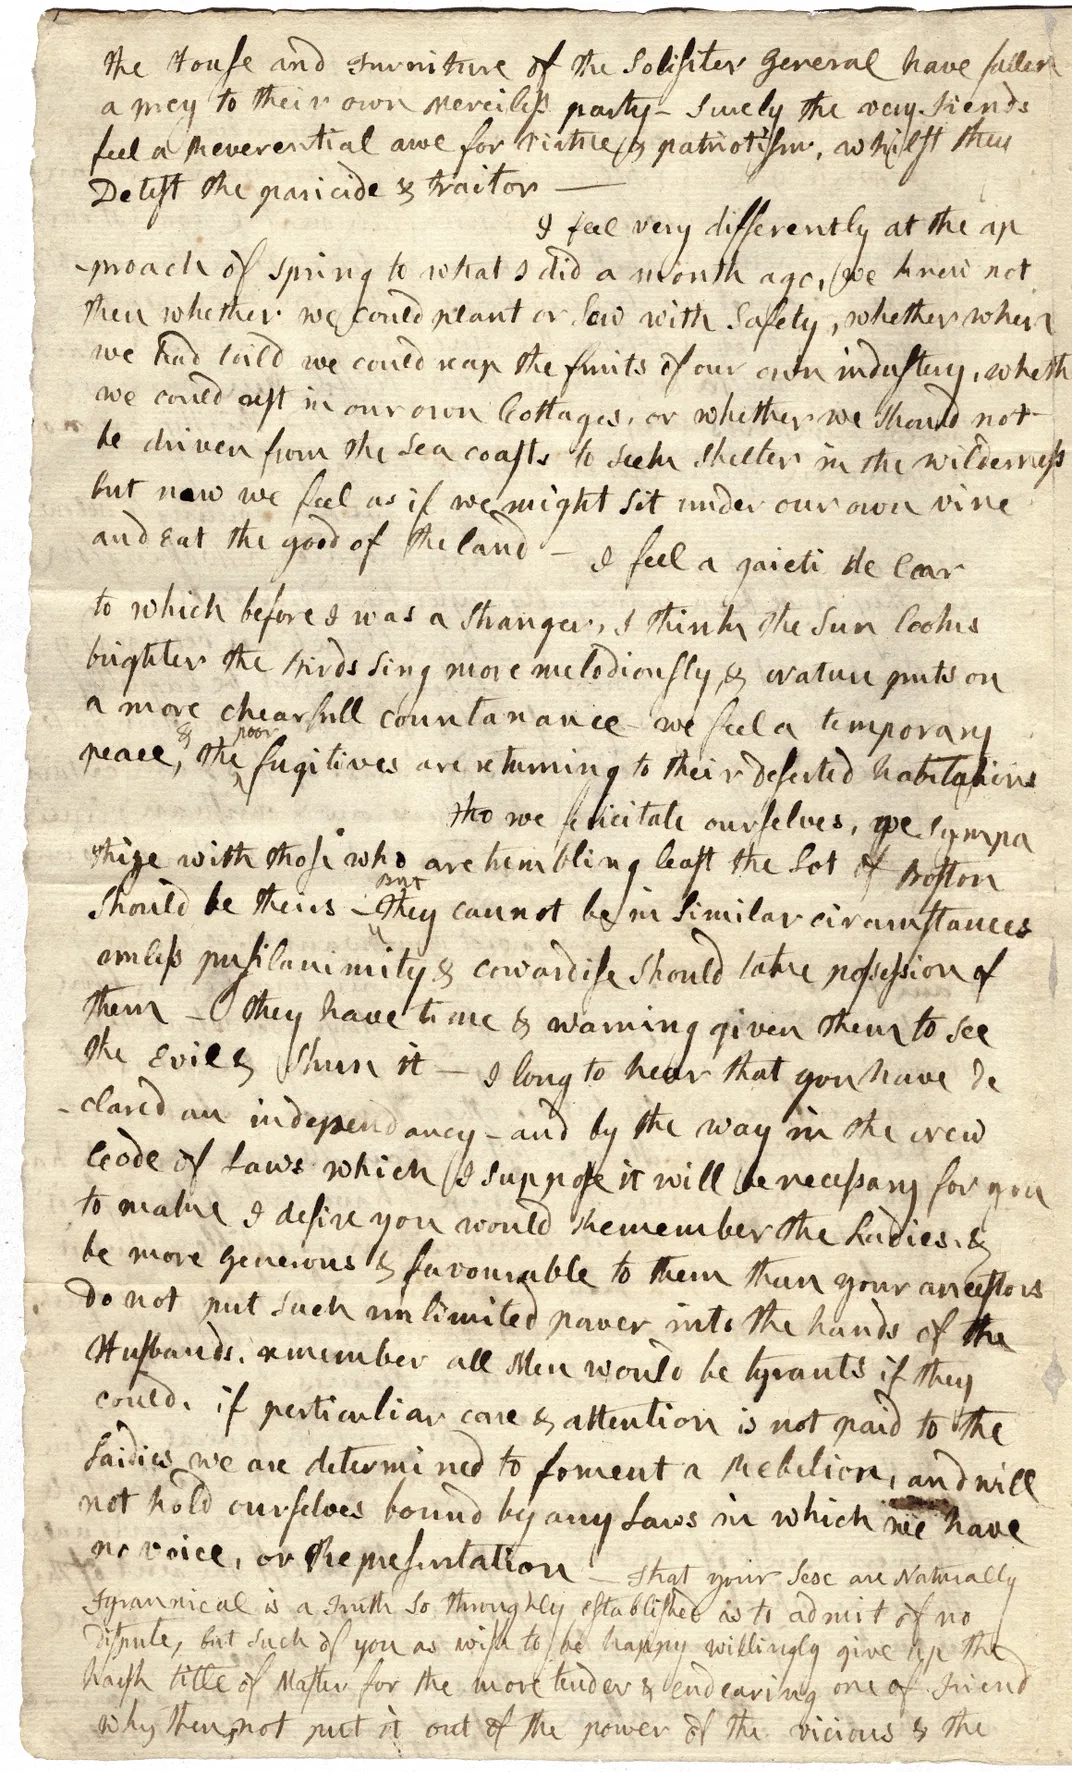 the House and Furniture of the Solisiter General have fallen
a prey to their own merciless party - Surely the very Fiends
feel a Reverential awe for Virtue & patriotism, whilst they
Detest the paricide & traitor —
I feel very differently at the ap
-proach of Spring to what I did a month ago, we knew not
then whether we could plant or sow with Safety, whether when
we had toild we could reap the fruits of our own industery, wheth
we could rest in our own Cottages, or whether we should not
be driven from the Sea coasts to seek shelter in the wilderness
but now we feel as if we might sit under our own vine
and eat the good of the land - I feel a gaieti de Coar
to which before I was a stranger, I think the Sun looks
brighter the Birds sing more melodiously, & Nature puts on
a more chearfull countanance - we feel a temporary
peace, & the poor fugitives are returning to their deserted habitations
Tho we felicitate ourselves, we sympa
thize with those who are trembling least the Lot of Boston
should be theirs - But they cannot be in similar circumstances
unless pusilanimity & cowardise should take possession of
them - they have time & warning given them to see
the Evil & shun it - I long to hear that you have de
-clared an independancy - and by the way in the new
Code of Laws which I suppose it will be necessary for you
to make I desire you would Remember the Ladies, &
be more generous & favourable to them than your ancestors
do not put such unlimited power into the hands of the
Husbands. remember all Men would be tyrants if they
could. if perticuliar care & attention is not paid to the
Laidies we are determined to foment a Rebelion, and will
not hold ourselves bound by any Laws in which we have
no voice, or Representation — That your Sex are Naturally
Tyrannical is a Truth so throughly established as to admit of no
dispute, but such of you as wish to be happy willingly give up the
harsh title of Master for the more tender & endearing one of Friend
why then, not put it out of the power of the vicious & the